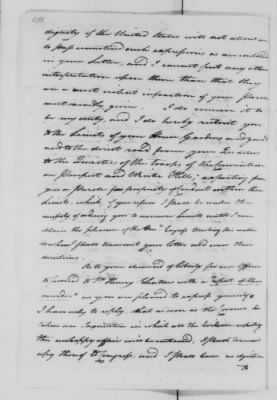 dignity of the United States will not allow me
to pass unnoticed such expressions as are contained
in your Letter, and I cannot put any other
interpretation upon them than that they
are a most violent infraction of your Parole
most sacredly given. I do conceive it to
be my duty, and I do hereby restrict you
to the Limits of your House Gardens and yard
and to the direct road from your Quarters
to the Quarters of the Troops of the Convention
on Prospect and Winter Hills, expecting from
you a Parole for propriety of Conduct within these
limits, which if you refuse I shall be under the
necessity of ordering you to narrower limits until I can
obtain the pleasure of the Congress touching this matter
to whom I shall transmit your letter and wait their
decision.
As to your demand of liberty for an Officer
to proceed to Sr Henry Clinton with a report of this
murder as you are pleased to express yourself
I have only to reply, that as soon as the Coroner has
taken an Inquisition in which all the Evidence respecting
this unhappy affair will be contained, I shall transmit
copy thereof to Congress, and I shall have no objection
to